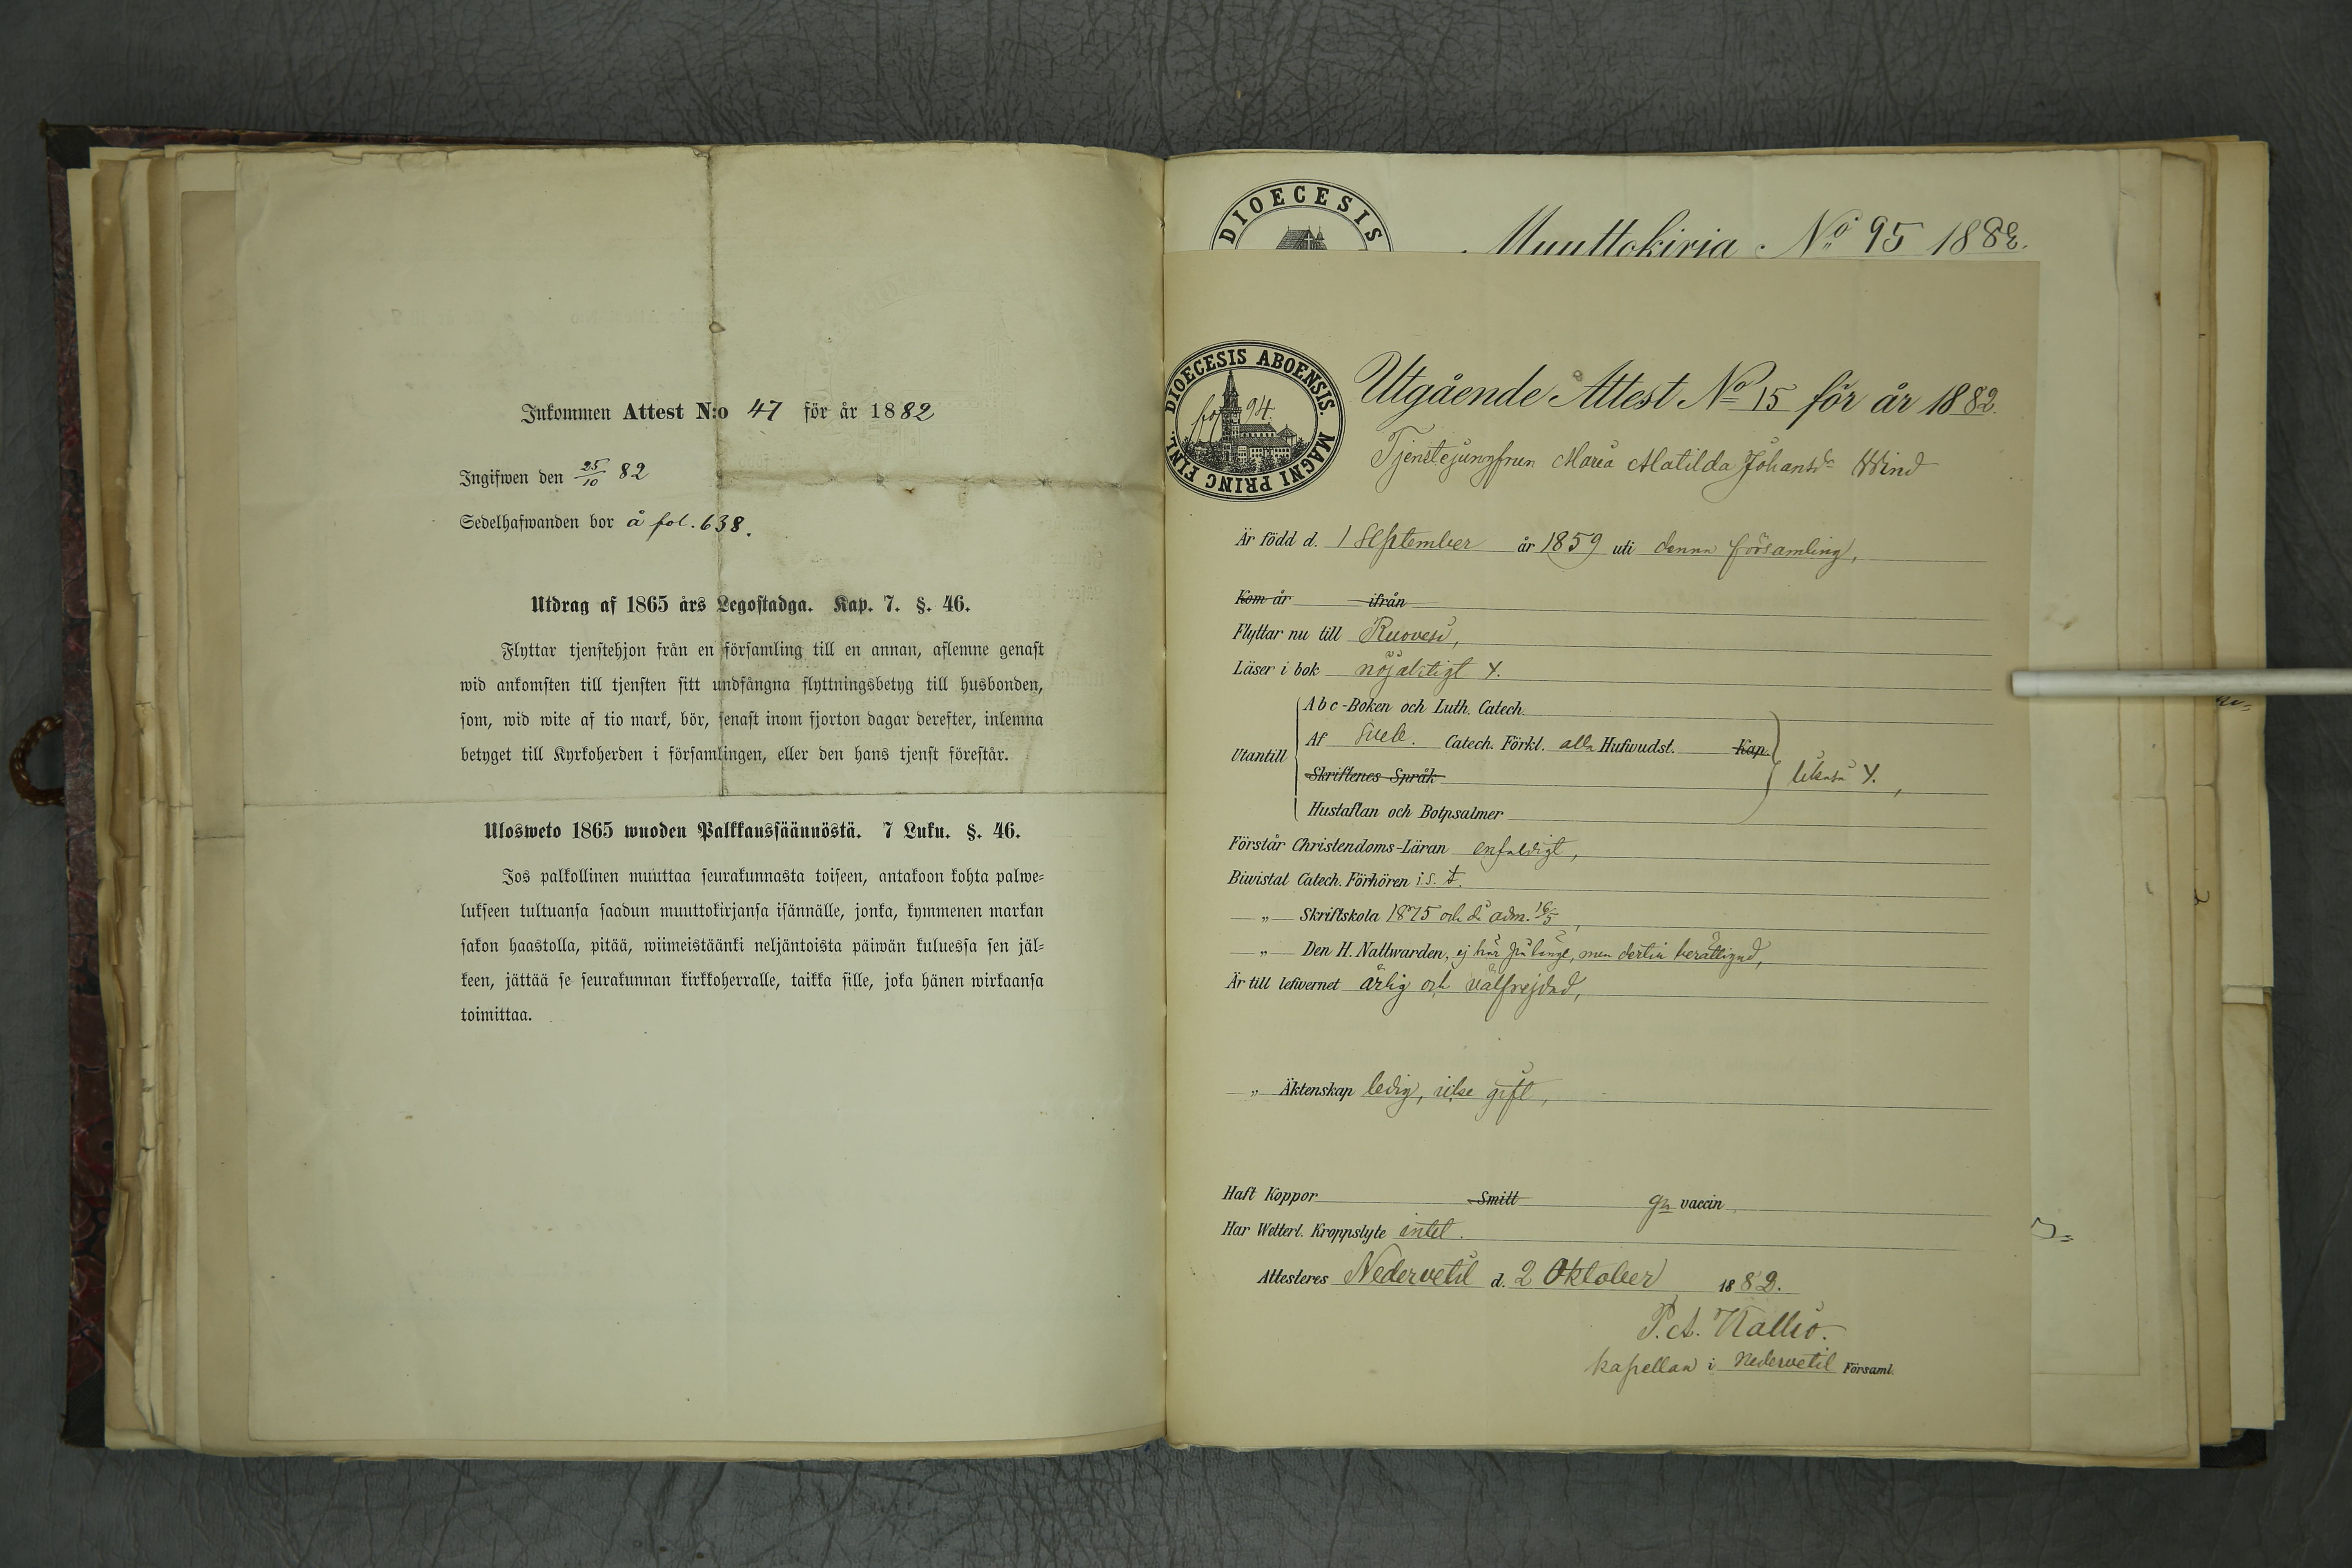 Inkommen Attest N:o 47 för år 1882
Ingifwen den 25/10 82
Sedelhafwanden bor å fol. 638.
Utdrag af 1865 års Legostadga. Kap. 7. §. 46.
Flyttar tjenstehjon från en församling till en annan, aflemne genast
wid ankomsten till tjensten sitt undfångna flyttningsbetyg till husbonden,
som, wid wite af tio mark, bör, senast inom fjorton dagar derefter, inlemna
betyget till Kyrkoherden i församlingen, eller den hans tjenst förestår.
Ulosweto 1865 wuoden Palkkaussäännöstä. 7 Luku. §. 46.
Jos palkollinen muuttaa seurakunnasta toiseen, antakoon kohta palwe-
lukseen tultuansa saadun muuttokirjansa isännälle, jonka, kymmenen markan
sakon haastolla, pitää, wiimeistäänki neljäntoista päiwän kuluessa sen jäl-
keen, jättää se seurakunnan kirkkoherralle, taikka sille, joka hänen wirkaansa
toimittaa.
DIOECESIS
Muuttokirja No 95 1882.
DIOECESIS ABOENSIS. MAGNI PRINC FINL.
fol 94.
Utgående Attest No 15 för år 1882.
Tjenstejungfrun Maria Matilda Johansdr Wind
Är född d. 1 September år 1859 uti denna församling,
Kom år ifrån
Flyttar nu till Ruovesi,
Läser i bok nöjaktigt
Abc-Boken och Luth. Catech.
Af Sveb. Catech. Förkl. alla Hufwudst. Kap.
Utantill
Skriftenes Språk
likaså
Hustaflan och Botpsalmer
Förstår Christendoms-Läran enfaldigt,
Biwistat Catech. Förhören
„ Skriftskola 1875 och då adm. 16/5,
„ Den H. Nattwarden, ej här på länge, men dertill berättigad,
Är till lefwernet ärlig och välfrejdad,
„ Äktenskap ledig, icke gift,
Haft Koppor Smitt gn vaccin
Har Wetterl. Kroppslyte intet.
Attesteres Nedervetil d. 2 Oktober 1882.
P. A. Kallio.
kapellan i Nedervetil Församl.